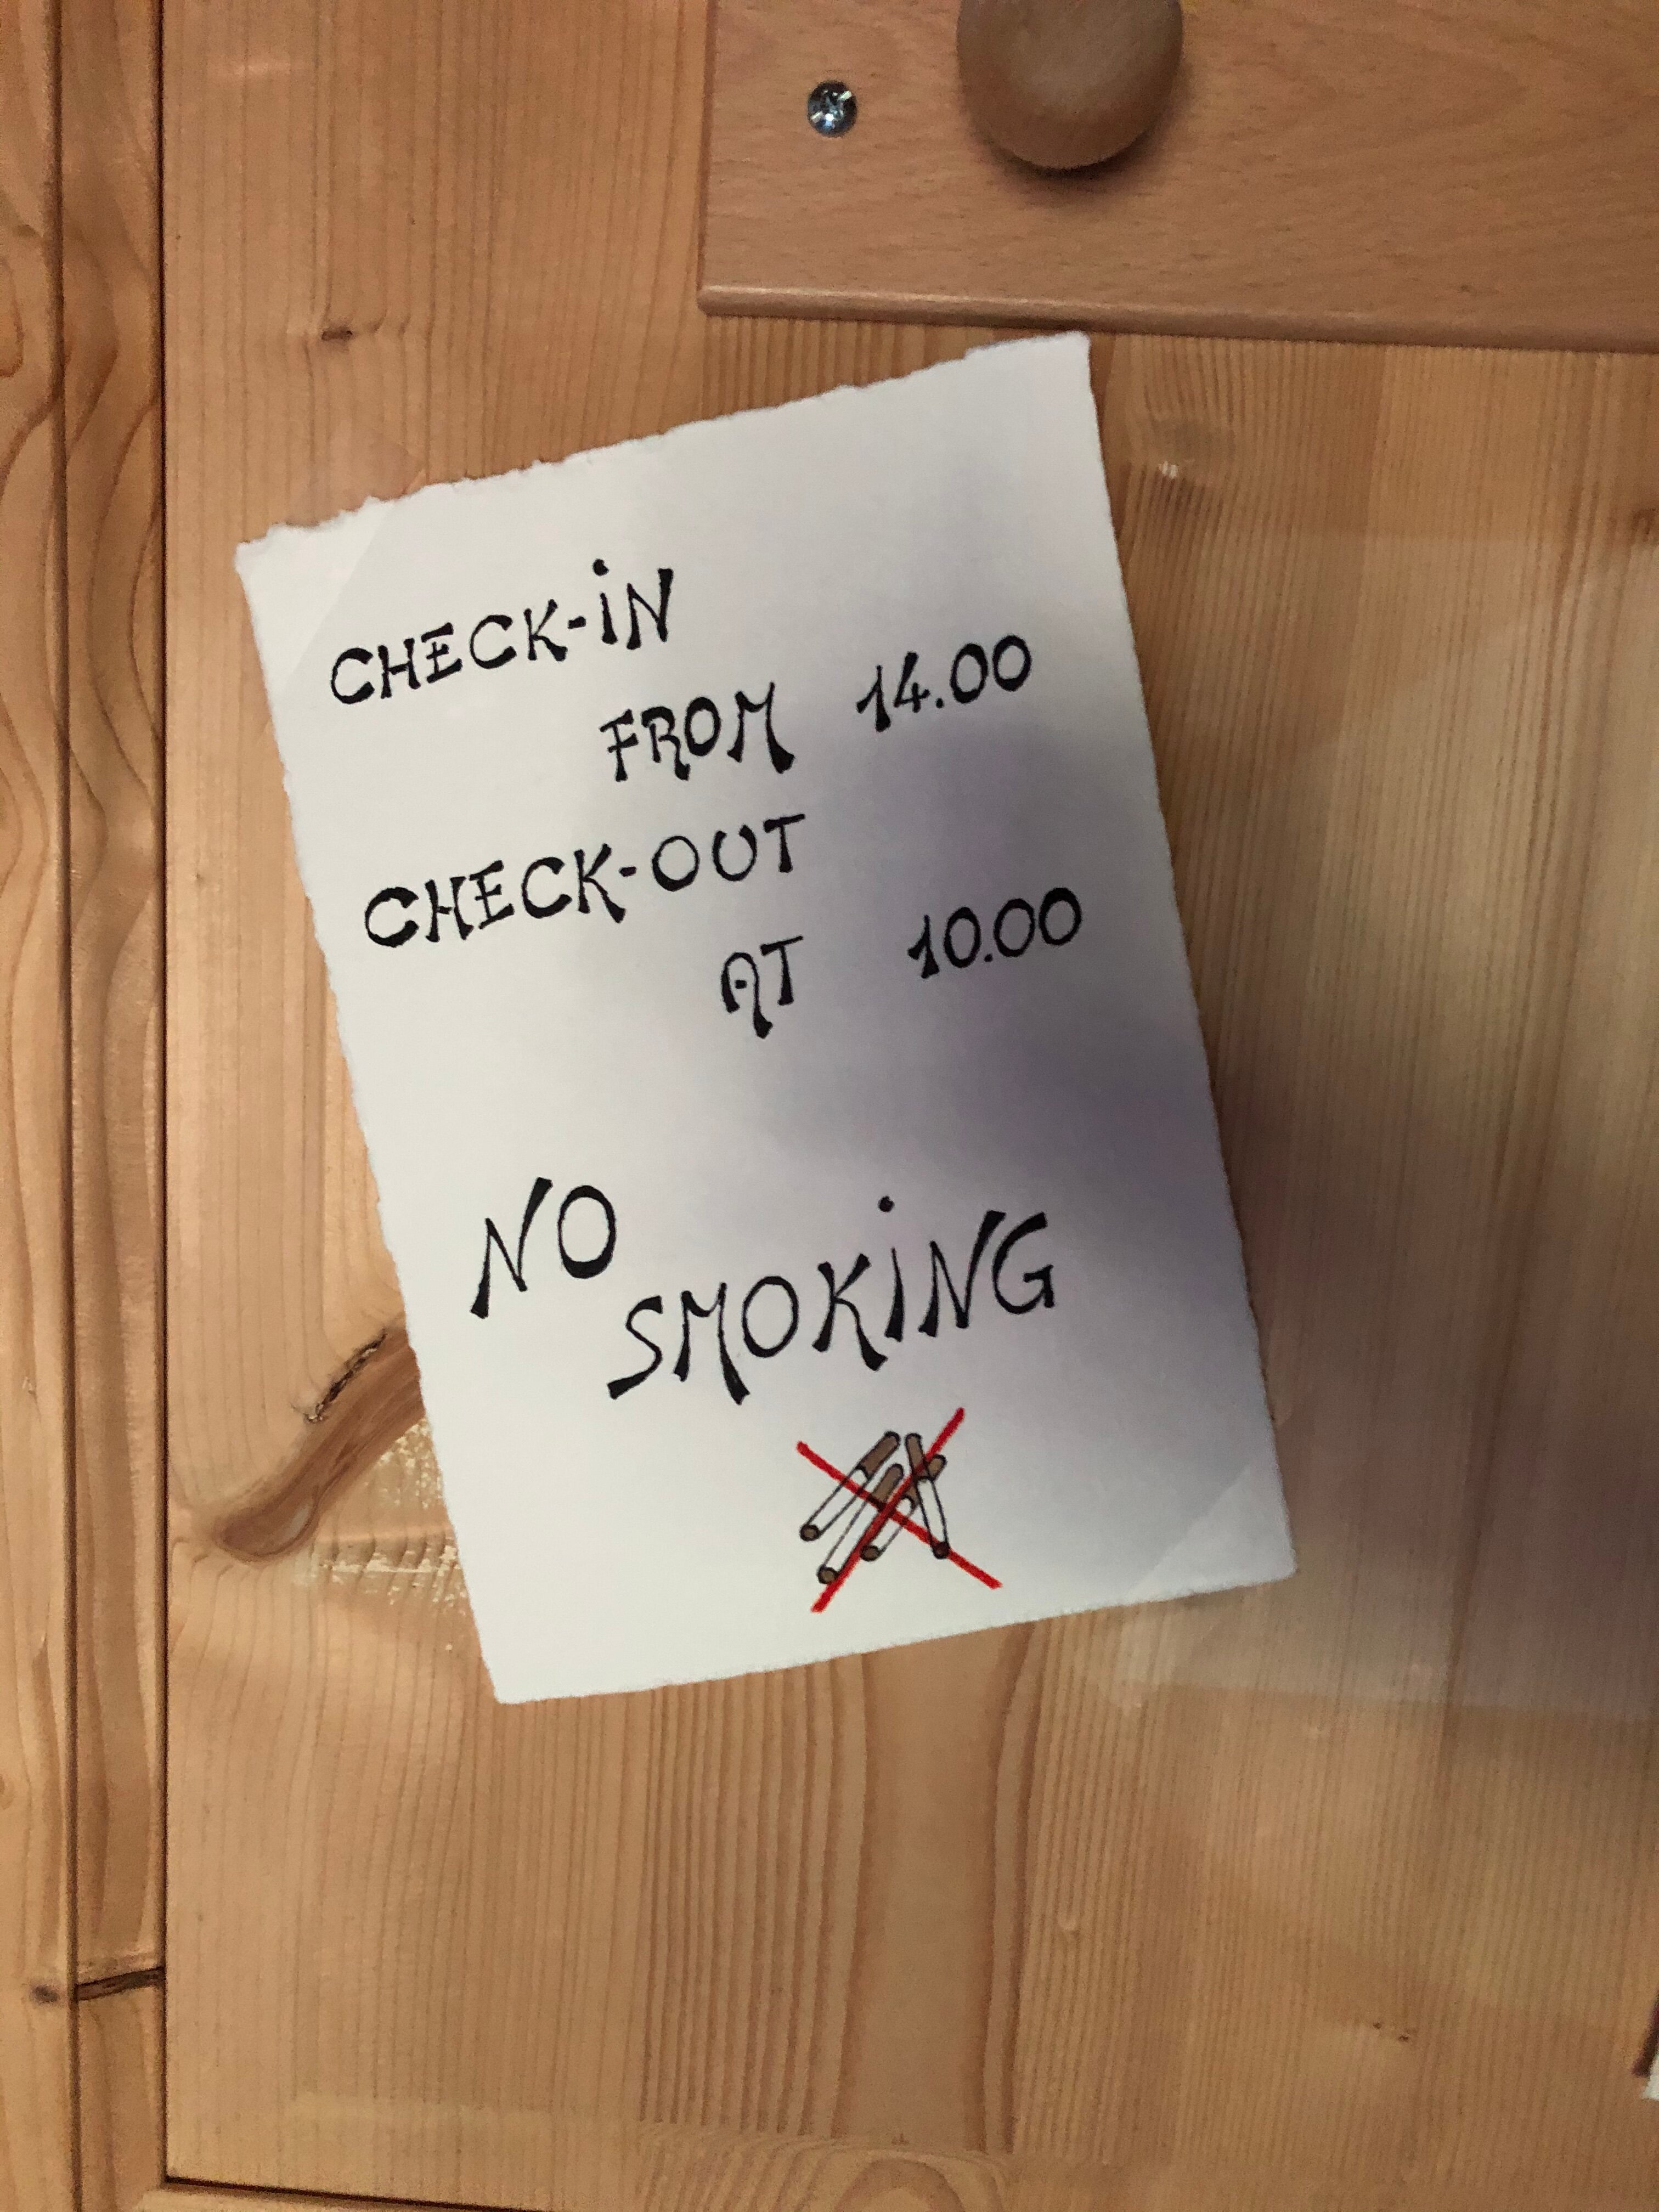 CHECK-iN
FROM 14.00
CHECK-OUT
AT 10.00
NO
SMOKiNG